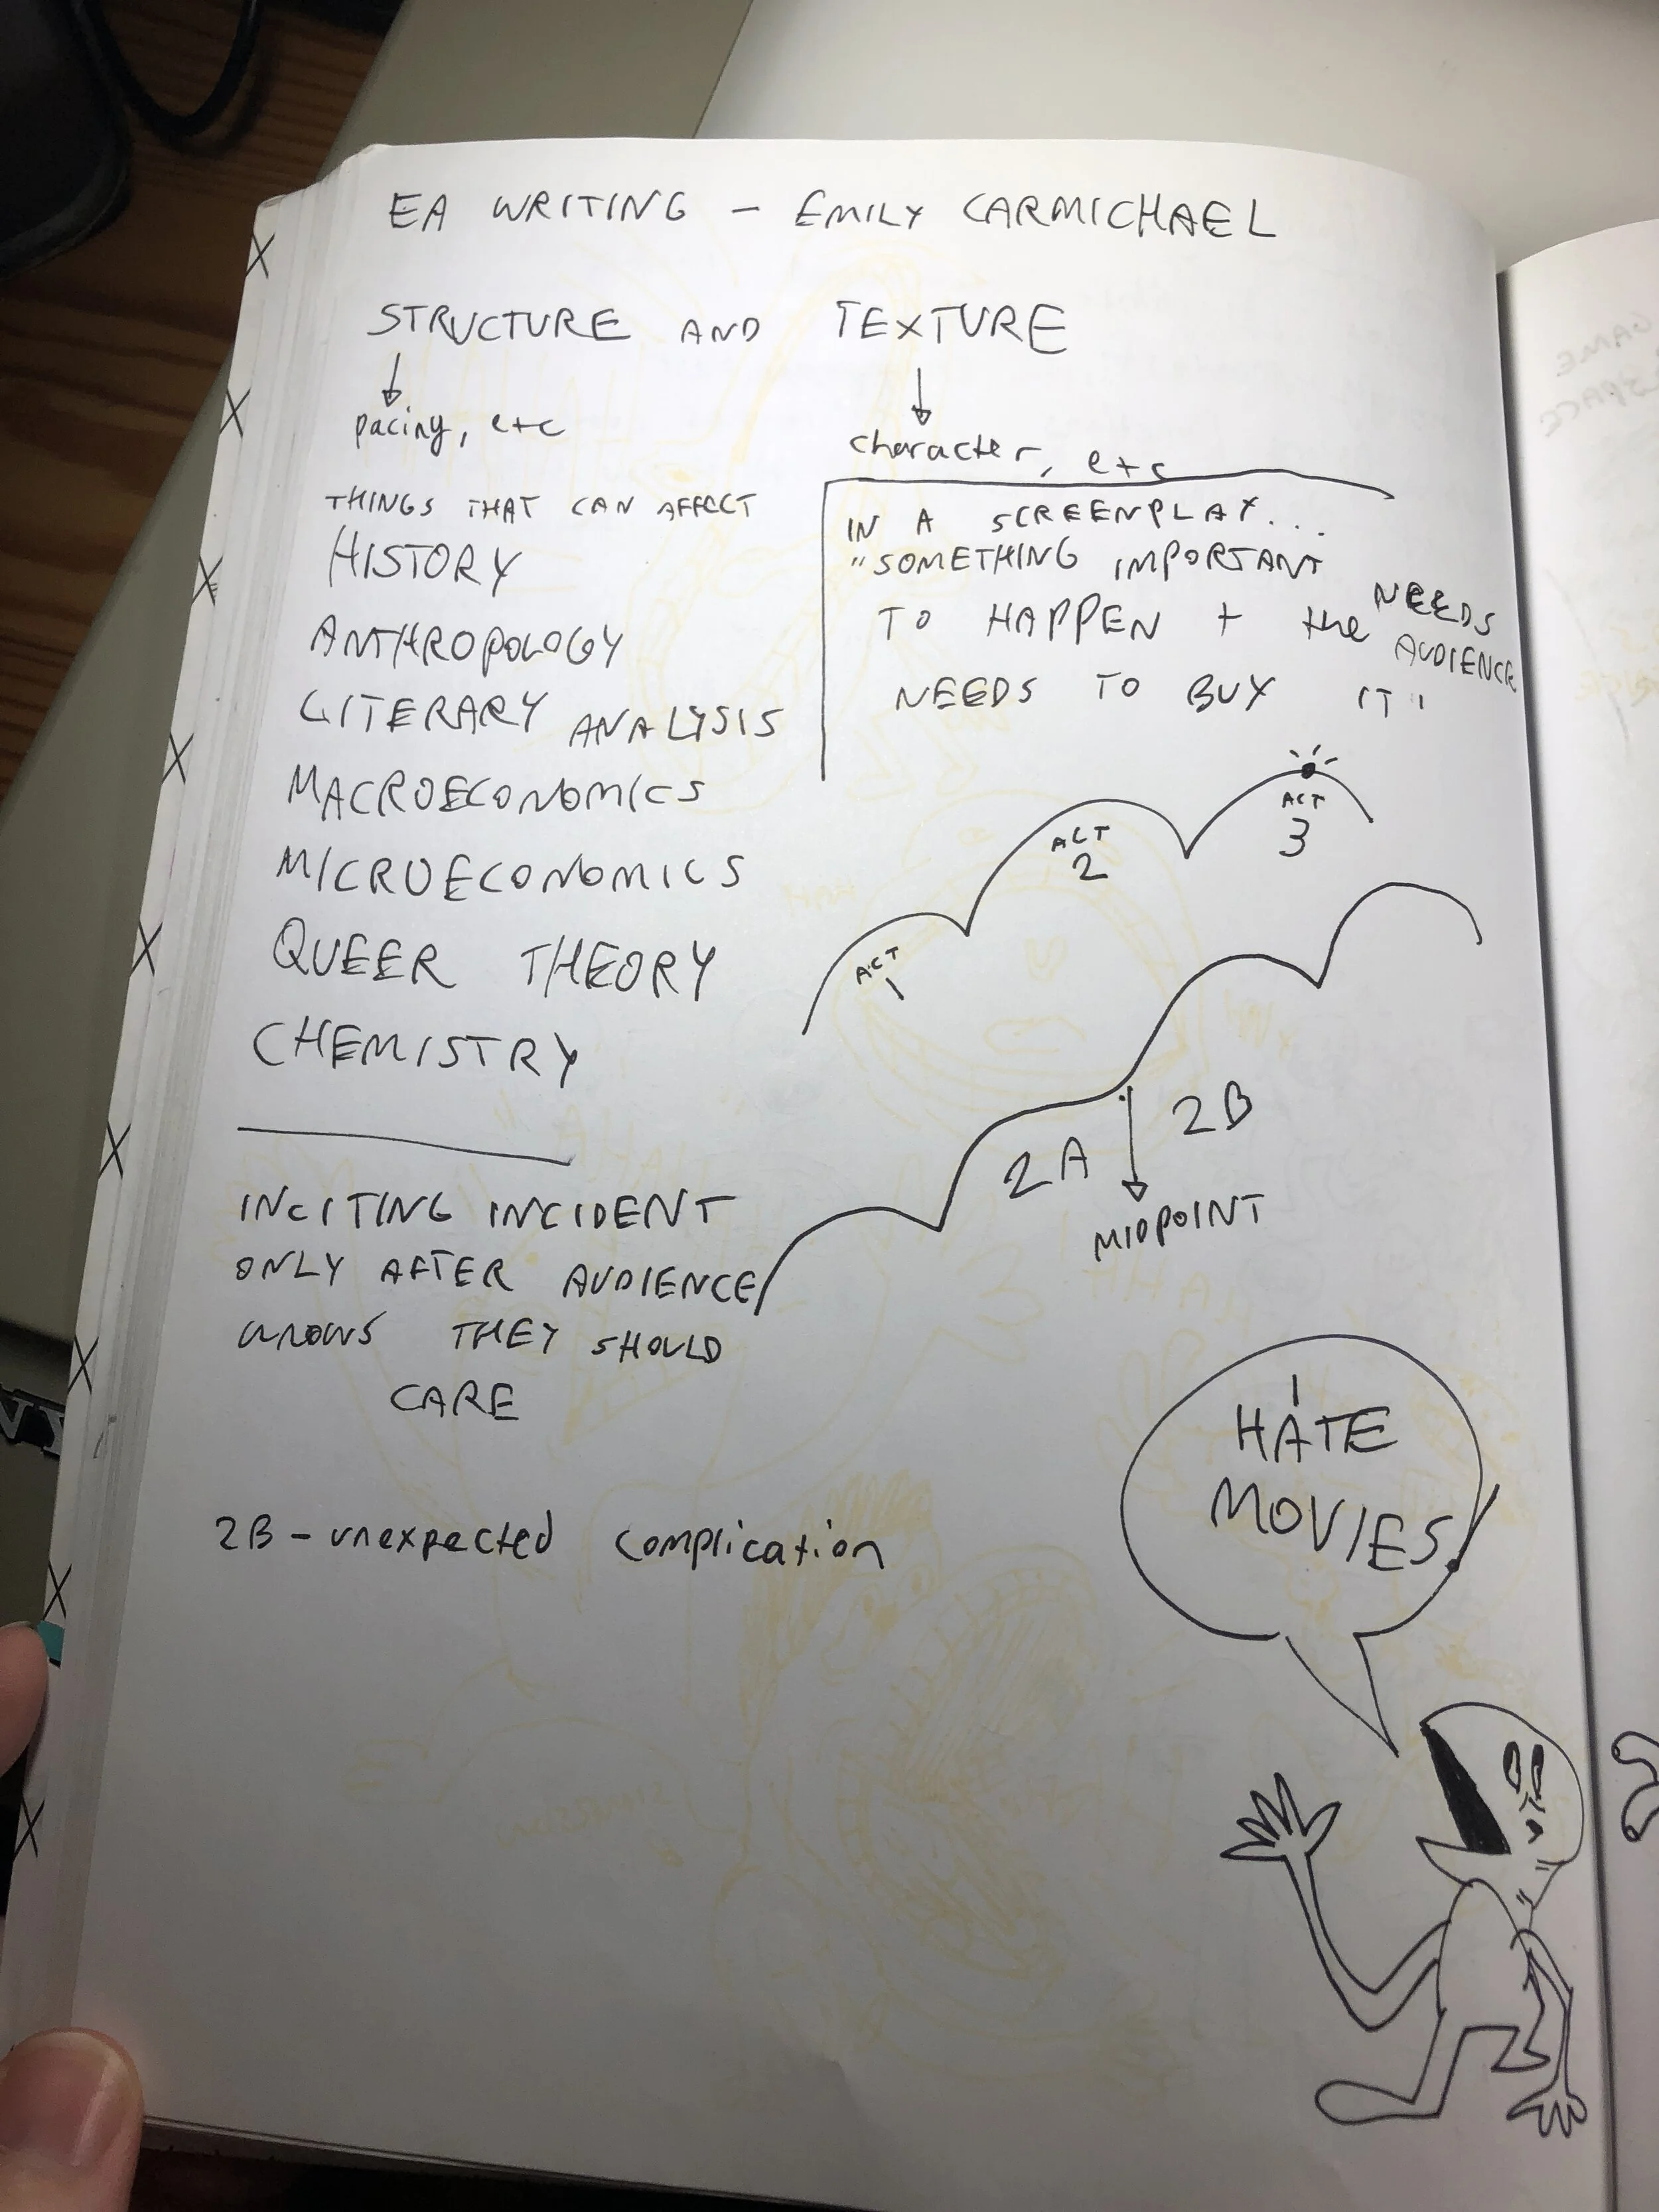 EA WRITING - EMILY CARMICHAEL
STRUCTURE AND TEXTURE
pacing, etc
character, etc
THINGS THAT CAN AFFECT
HISTORY
ANTHROPOLOGY
LITERARY ANALYSIS
MACROECONOMICS
MICROECONOMICS
QUEER THEORY
CHEMISTRY
IN A SCREENPLAY...
"SOMETHING IMPORTANT NEEDS
TO HAPPEN + the AUDIENCE
NEEDS TO BUY IT"
ACT
1
ACT
2
ACT
3
2A
2B
MIDPOINT
INCITING INCIDENT
ONLY AFTER AUDIENCE
KNOWS THEY SHOULD
CARE
2B - unexpected complication
I
HATE
MOVIES.
GAME
SPACE